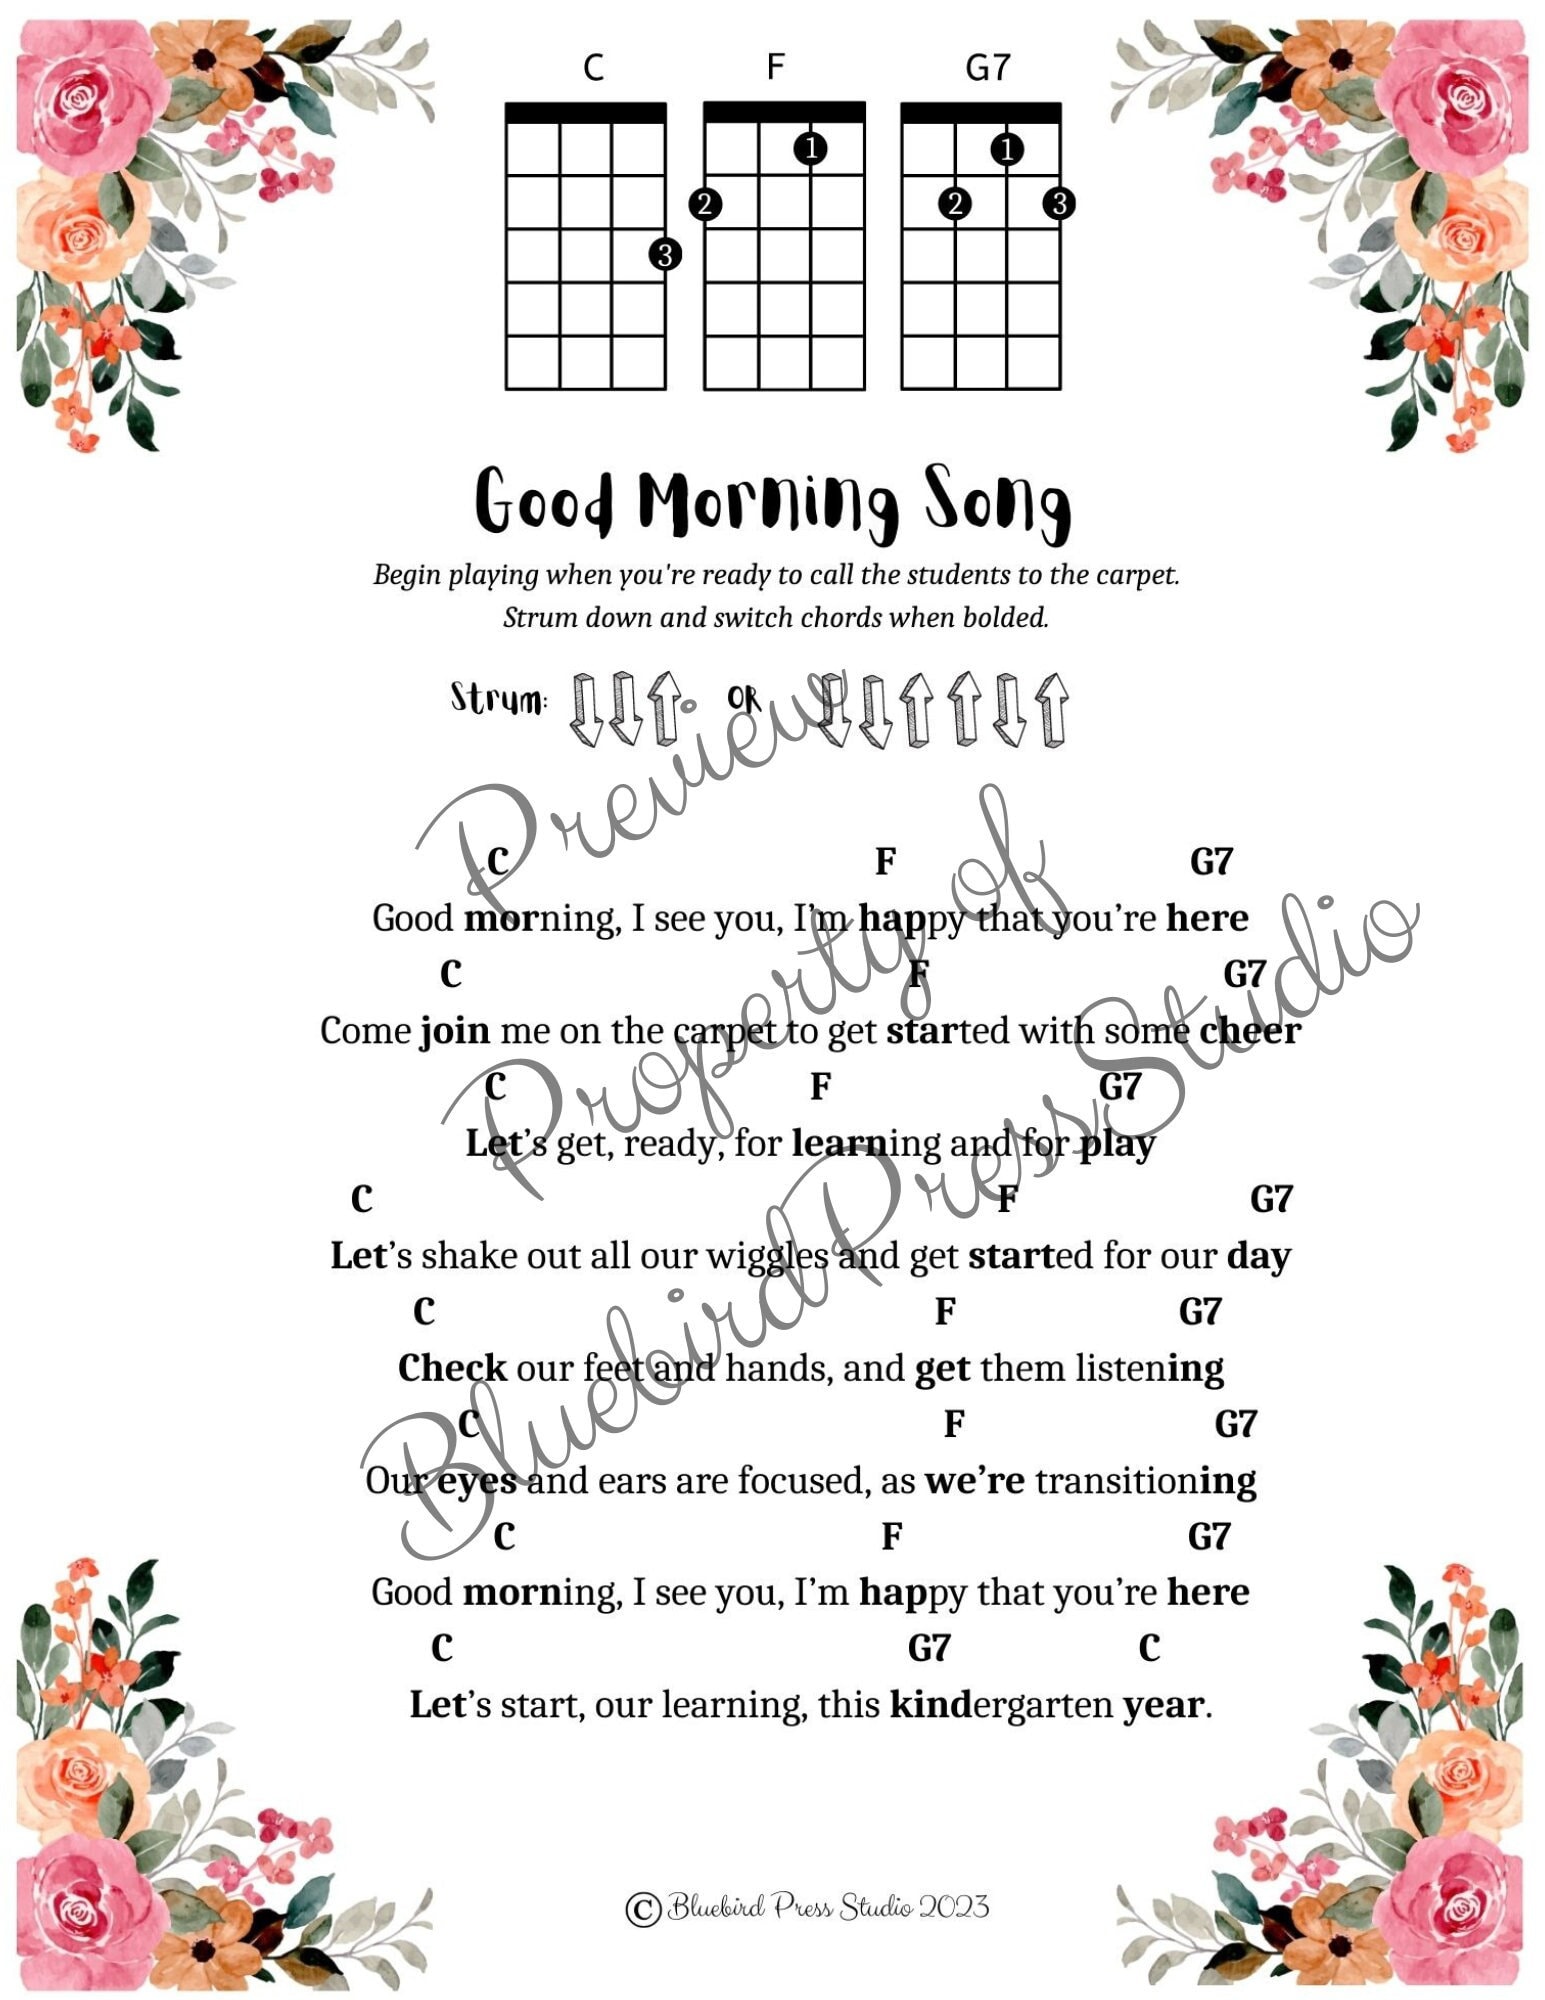 C F G7
1 1
2 2 3
3
Good Morning Song
Begin playing when you're ready to call the students to the carpet.
Strum down and switch chords when bolded.
Strum: OR
C F G7
Good morning, I see you, I'm happy that you're here
C F G7
Come join me on the carpet to get started with some cheer
C F G7
Let's get, ready, for learning and for play
C F G7
Let's shake out all our wiggles and get started for our day
C F G7
Check our feet and hands, and get them listening
C F G7
Our eyes and ears are focused, as we're transitioning
C F G7
Good morning, I see you, I'm happy that you're here
C G7 C
Let's start, our learning, this kindergarten year.
Preview
Property of
BluebirdPressStudio
© Bluebird Press Studio 2023